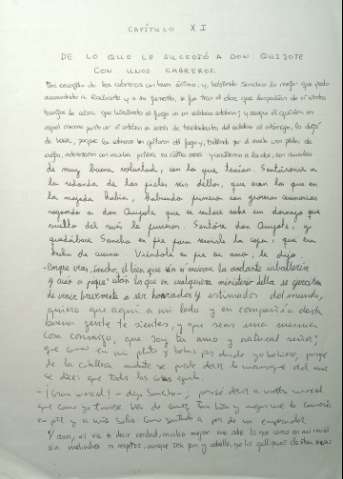 CAPÍTULO XI
DE LO QUE LE SUCEDIÓ A DON QUIJOTE
CON UNOS CABREROS
Fue recogido de los cabreros con buen ánimo; y, habiendo Sancho lo mejor que pudo
acomodado a Rocinante y a su jumento, se fue tras el olor que despedían de sí ciertos
tasajos de cabra que hirviendo al fuego en un caldero estaban; y aunque él quisiera en
aquel mesmo punto ver si estaban en sazón de trasladarlos del caldero al estómago, lo dejó
de hacer, porque los cabreros los quitaron del fuego y, tendiendo por el suelo unas pieles de
ovejas, aderezaron con mucha priesa su rústica mesa y convidaron a los dos, con muestras
de muy buena voluntad, con lo que tenían. Sentáronse a
la redonda de las pieles seis dellos, que eran los que en
la majada había, habiendo primero con groseras ceremonias
rogando a don Quijote que se sentase sobre un dornajo que
vuelto del revés le pusieron. Sentóse don Quijote, y
quedábase Sancho en pie para servirle la copa, que era
hecha de cuerno. Viéndole en pie su amo, le dijo:
-Porque veas, Sancho, el bien que en sí encierra la andante caballería
y cuán a pique están los que en cualquiera ministerio della se ejercitan
de venir brevemente a ser honrados y estimados del mundo,
quiero que aquí a mi lado y en compañía desta
buena gente te sientes, y que seas una mesma
cosa conmigo, que soy tu amo y natural señor;
que comas en mi plato y bebas por donde yo bebiere, porque
de la caballería andante se puede decir lo mesmo que del amor
se dice: que todas las cosas iguala.
-¡Gran merced! - dijo Sancho-; pero sé decir a vuestra merced
que como yo tuviese bien de comer, tan bien y mejor me lo comería
en pie y a mis solas como sentado a par de un emperador.
Y aun, si va a decir verdad, mucho mejor me sabe lo que como en mi rincón
sin melindres ni respetos, aunque sea pan y cebolla, que los gallipavos de otras mesas